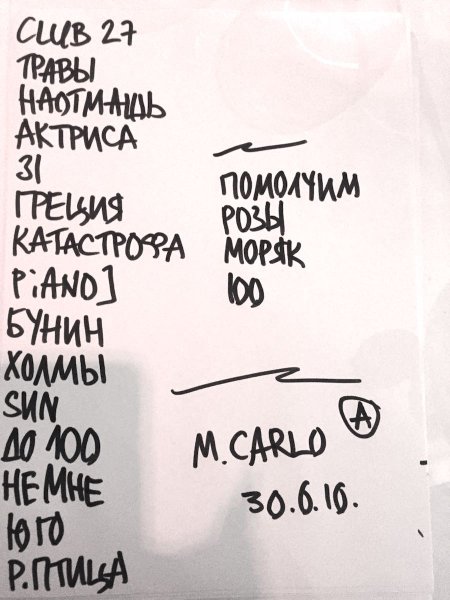 CLUB 27
ТРАВЫ
НАОТМАШЬ
АКТРИСА
31
ГРЕЦИЯ
КАТАСТРОФА
PiANO]
БУНИН
ХОЛМЫ
SUN
ДО 100
НЕ МНЕ
ЮГО
Р.ПТИЦА
ПОМОЛЧИМ
РОЗЫ
МОРЯК
100
A
M.CARLO
30.6.10.